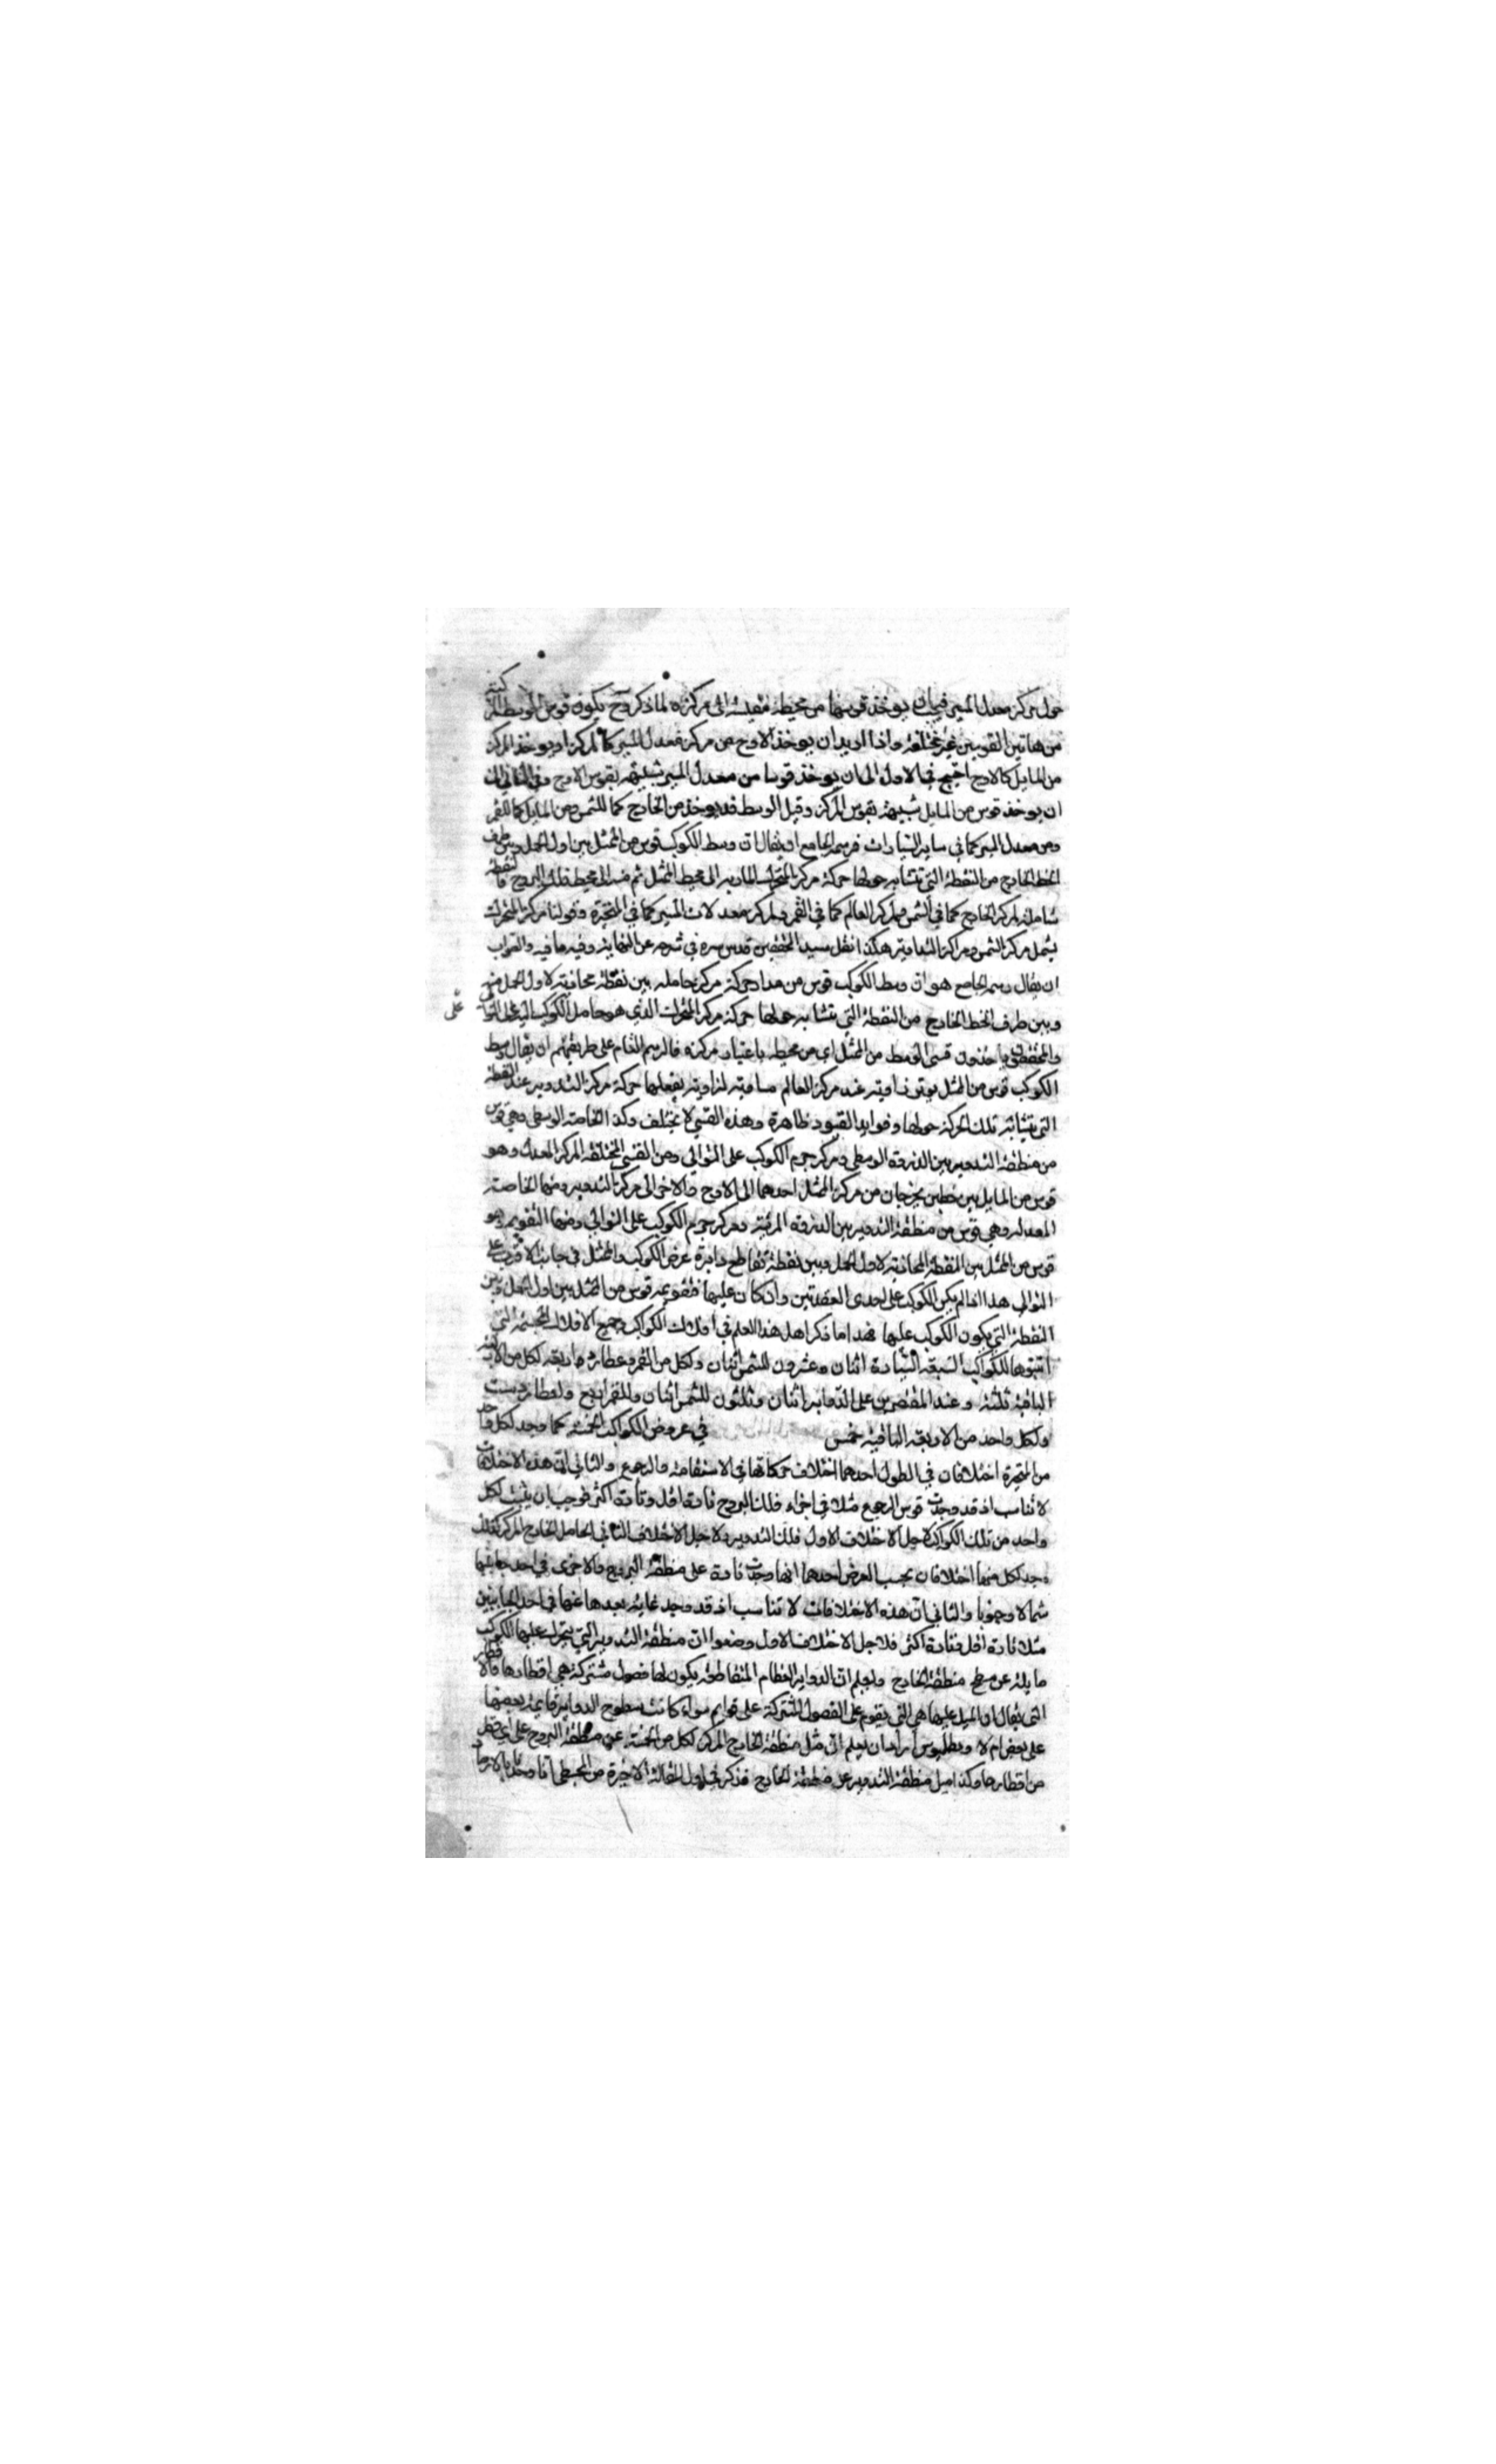 حول مركز معدل المسير فيجب ان يوخذ قوسها من محيطه مقيسة الى مركزه لما ذكر وح يكون قوس الوسط المركبة
من هاتين القوسين غير مختلفة واذا اريد ان يوخذ الاوج من مركز معدل المسير كالمركز او يوخذ المركز
من المايل كالاوج احتيج في الاول الى ان يوخذ قوسا من معدل المسير شبيهة بقوس الاوج وفي الثاني الى
ان يوخذ قوس من المايل شبيهة بقوس المركز وقيل الوسط قد يوخذ من الخارج كما للشمس ومن المايل كما للقمر
ومن معدل المسير كما في ساير السيارات فرسمه الجامع ان يقال ان وسط الكوكب قوس من الممثل بين اول الحمل وبين طرف
الخط الخارج من النقطة التي تتشابه حولها حركة مركز المتحرك المار به الى محيط الممثل ثم منه الى محيط فلك البروج فالنقطة
شاملة لمركز الخارج كما في الشمس ولمركز العالم كما في القمر ولمركز معدلات المسير كما في المتحيرة وقولنا مركز المتحرك
يشمل مركز الشمس ومراكز التداوير هكذا نقل سيد المحققين قدس سره في شرحه عن النهاية وفيه ما فيه والصواب
ان يقال رسمه الجامع هو ان وسط الكوكب قوس من مدار حركة مركز حامله بين نقطة محاذية لاول الحمل منه
وبين طرف الخط الخارج من النقطة التي تتشابه حولها حركة مركز المتحرك الذي هو حامل الكوكب اليه على التوالى
على
والمحققون ياخذون قسي الوسط من الممثل اي من محيطه باعتبار مركزه فالرسم العام على طريقتهم ان يقال وسط
الكوكب قوس من الممثل يوتر زاوية عند مركز العالم مساوية لزاوية يفعلها حركة مركز التدوير عند النقطة
التي تتشابه تلك الحركة حولها وفوايد القيود ظاهرة وهذه القسي لا تختلف وكذا الخاصة الوسطى وهي قوس
من منطقة التدوير بين الذروة الوسطى ومركز جرم الكوكب على التوالى ومن القسي المختلفة المركز المعدل وهو
قوس من المايل بين خطين يخرجان من مركز الممثل احدهما الى الاوج والاخر الى مركز التدوير ومنها الخاصة
المعدله وهي قوس من منطقة التدوير بين الذروة المرئية ومركز جرم الكوكب على التوالي ومنها التقويم وهو
قوس من الممثل بين النقطة المحاذية لاول الحمل وبين نقطة تقاطع دايرة عرض الكوكب والممثل في جانب الاقرب على
التوالى هذا اذا لم يكن الكوكب على احدى العقدتين وان كان عليها فتقويمه قوس من الممثل بين اول الحمل وبين
النقطة التي يكون الكوكب عليها فهذا ما ذكر اهل هذا العلم في افلاك الكواكب وجميع الافلاك المجسمة التي
اثبتوها للكواكب السبعة السيارة اثنان وعشرون للشمس اثنان ولكل من القمر وعطارد اربعة لكل من الاربعة
الباقية ثلثة وعند المقتصرين على الدواير اثنان وثلثون للشمس اثنان وللقمر اربع ولعطارد ست
ولكل واحد من الاربعة الباقية خمس في عروض الكواكب الخمسة كما وجد لكل واحد
من المتحيرة اختلافان في الطول احدهما اختلاف حركاتها في الاستقامة والرجوع والثاني ان هذه الاختلافات
لا تناسب اذ قد وجدت قوس الرجوع مثلا في اجزاء فلك البروج تارة اقل وتارة اكثر فوجب ان يثبت لكل
واحد من تلك الكواكب لاجل الاختلاف الاول فلك التدوير ولاجل الاختلاف الثاني الحامل الخارج المركز كذلك
وجد لكل منها اختلافان بحسب العرض احدهما انها وجدت تارة على منطقة البروج والاخرى في احد جانبيها
شمالا وجنوبا والثاني ان هذه الاختلافات لا تناسب اذ قد وجد غاية بعدها عنها في احد الجانبين
مثلا تارة اقل وتارة اكثر فلاجل الاختلاف الاول وضعوا ان منطقة التدوير التي يتحرك عليها الكوكب
مايلة عن سطح منطقة الخارج وليعلم ان الدواير العظام المتقاطعة يكون لها فصول مشتركة هي اقطارها والاقطار
التي يقال ان الميل عليها هي التي يقوم على الفصول المشتركة على قوايم سواء كانت سطوح الدواير قايمة بعضها
على بعض ام لا وبطلميوس اراد ان يعلم ان ميل منطقة الخارج المركز لكل من الخمسة عن منطقة البروج على اي قطر
من اقطارها وكذا ميل منطقة التدوير عن منطقة الخارج فذكر في اول المقالة الاخيرة من المجسطي انا وجدنا بالارصاد